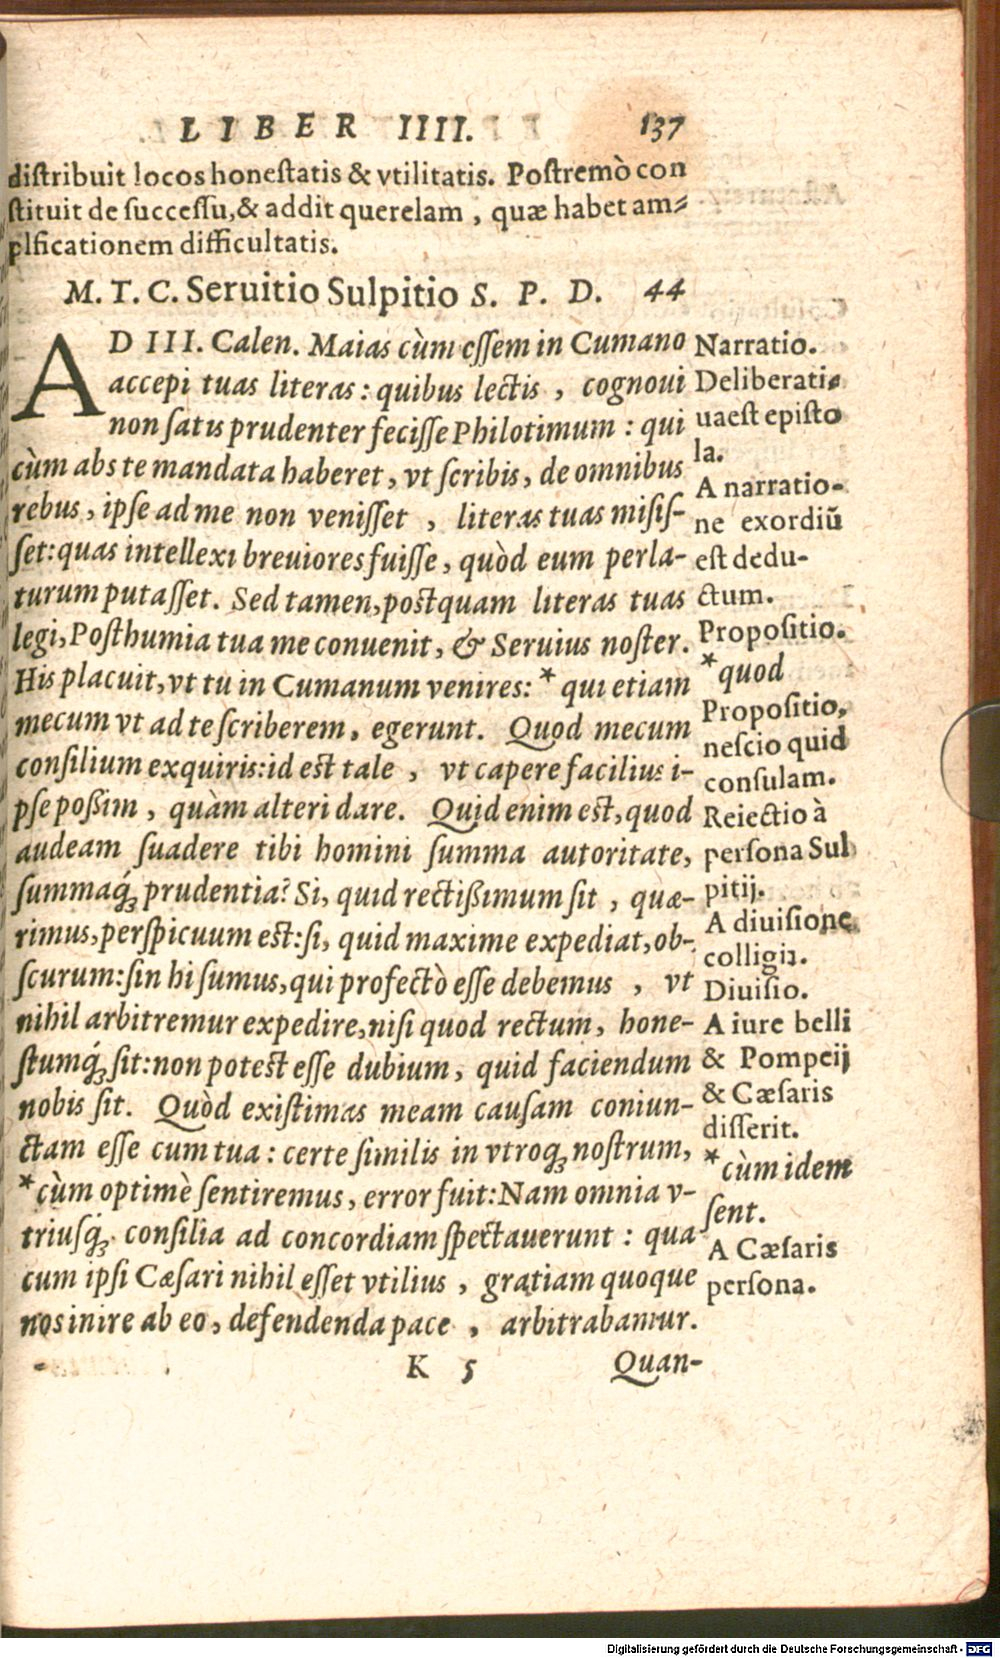 LIBER IIII. 137
distribuit locos honestatis & vtilitatis. Postremò con
stituit de successu, & addit querelam, quæ habet am-
plficationem difficultatis.
M. T. C. Seruitio Sulpitio S. P. D. 44
AD III. Calen. Maias cùm essem in Cumano
accepi tuas literas: quibus lectis, cognoui
non satis prudenter fecisse Philotimum: qui
cùm abs te mandata haberet, vt scribis, de omnibus
rebus, ipse ad me non venisset, literas tuas misis-
set: quas intellexi breuiores fuisse, quòd eum perla-
turum putasset. Sed tamen, postquam literas tuas
legi, Posthumia tua me conuenit, & Seruius noster.
His placuit, vt tu in Cumanum venires: * qui etiam
mecum vt ad te scriberem, egerunt. Quod mecum
consilium exquiris: id est tale, vt capere facilius i-
pse poßim, quàm alteri dare. Quid enim est, quod
audeam suadere tibi homini summa autoritate,
summaq́ꝫ prudentia? Si, quid rectißimum sit, quæ-
rimus, perspicuum est: si, quid maxime expediat, ob-
scurum: sin hi sumus, qui profectò esse debemus, vt
nihil arbitremur expedire, nisi quod rectum, hone-
stumq́ꝫ sit: non potest esse dubium, quid faciendum
nobis sit. Quòd existimas meam causam coniun-
ctam esse cum tua: certe similis in vtroqꝫ nostrum,
*cùm optimè sentiremus, error fuit: Nam omnia v-
triusq́ꝫ consilia ad concordiam spectauerunt: qua
cum ipsi Cæsari nihil esset vtilius, gratiam quoque
nos inire ab eo, defendenda pace, arbitrabamur.
K 5 Quan-
Narratio.
Deliberati-
ua est episto
la.
A narratio-
ne exordiū
est dedu-
ctum.
Propositio.
*quod
Propositio,
nescio quid
consulam.
Reiectio à
persona Sul
pitij.
A diuisione
colligit.
Diuisio.
A iure belli
& Pompeij
& Cæsaris
disserit.
*cùm idem
sent.
A Cæsaris
persona.
Digitalisierung gefördert durch die Deutsche Forschungsgemeinschaft - DFG